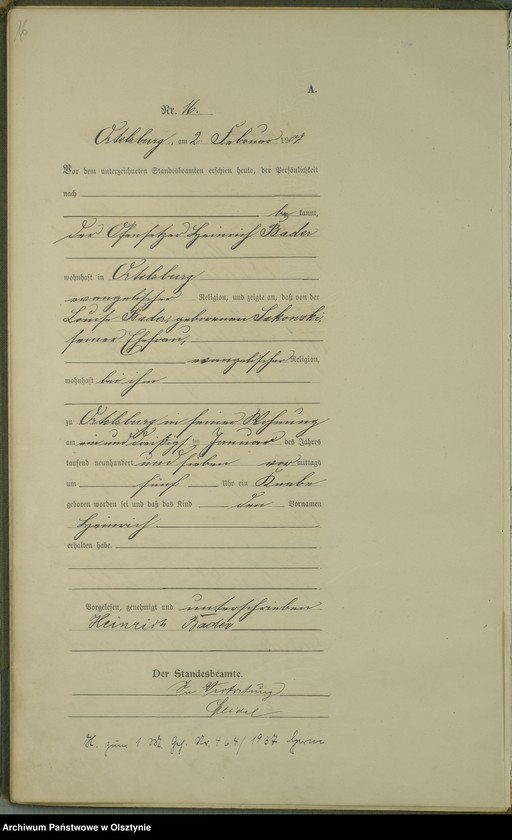 16
A.
Nr. 16.
Ortelsburg, am 2 Februar 1907
Vor dem unterzeichneten Standesbeamten erschien heute, der Persönlichkeit
nach
be kannt,
der Ofensetzer Heinrich Bader
wohnhaft in Ortelsburg
evangelischer Religion, und zeigte an, daß von der
Louise Bader, geborenen Sakowski,
seiner Ehefrau,
evangelischer Religion,
wohnhaft bei ihm
zu Ortelsburg in seiner Wohnung
am ein und dreißigsten Januar des Jahres
tausend neunhundert und sieben vor mittags
um fünf Uhr ein Knabe
geboren worden sei und daß das Kind den Vornamen
Heinrich
erhalten habe.
Vorgelesen, genehmigt und unterschrieben
Heinrich Bader
Der Standesbeamte.
In Vertretung
H. zum 1 M. Nr. 464/1937
Archiwum Państwowe w Olsztynie